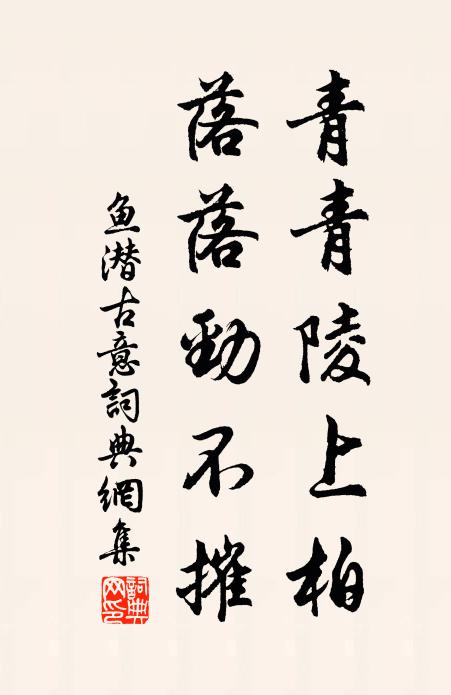 青青陵上柏
落落勁不摧
鱼潜古意詞典網集
詞典